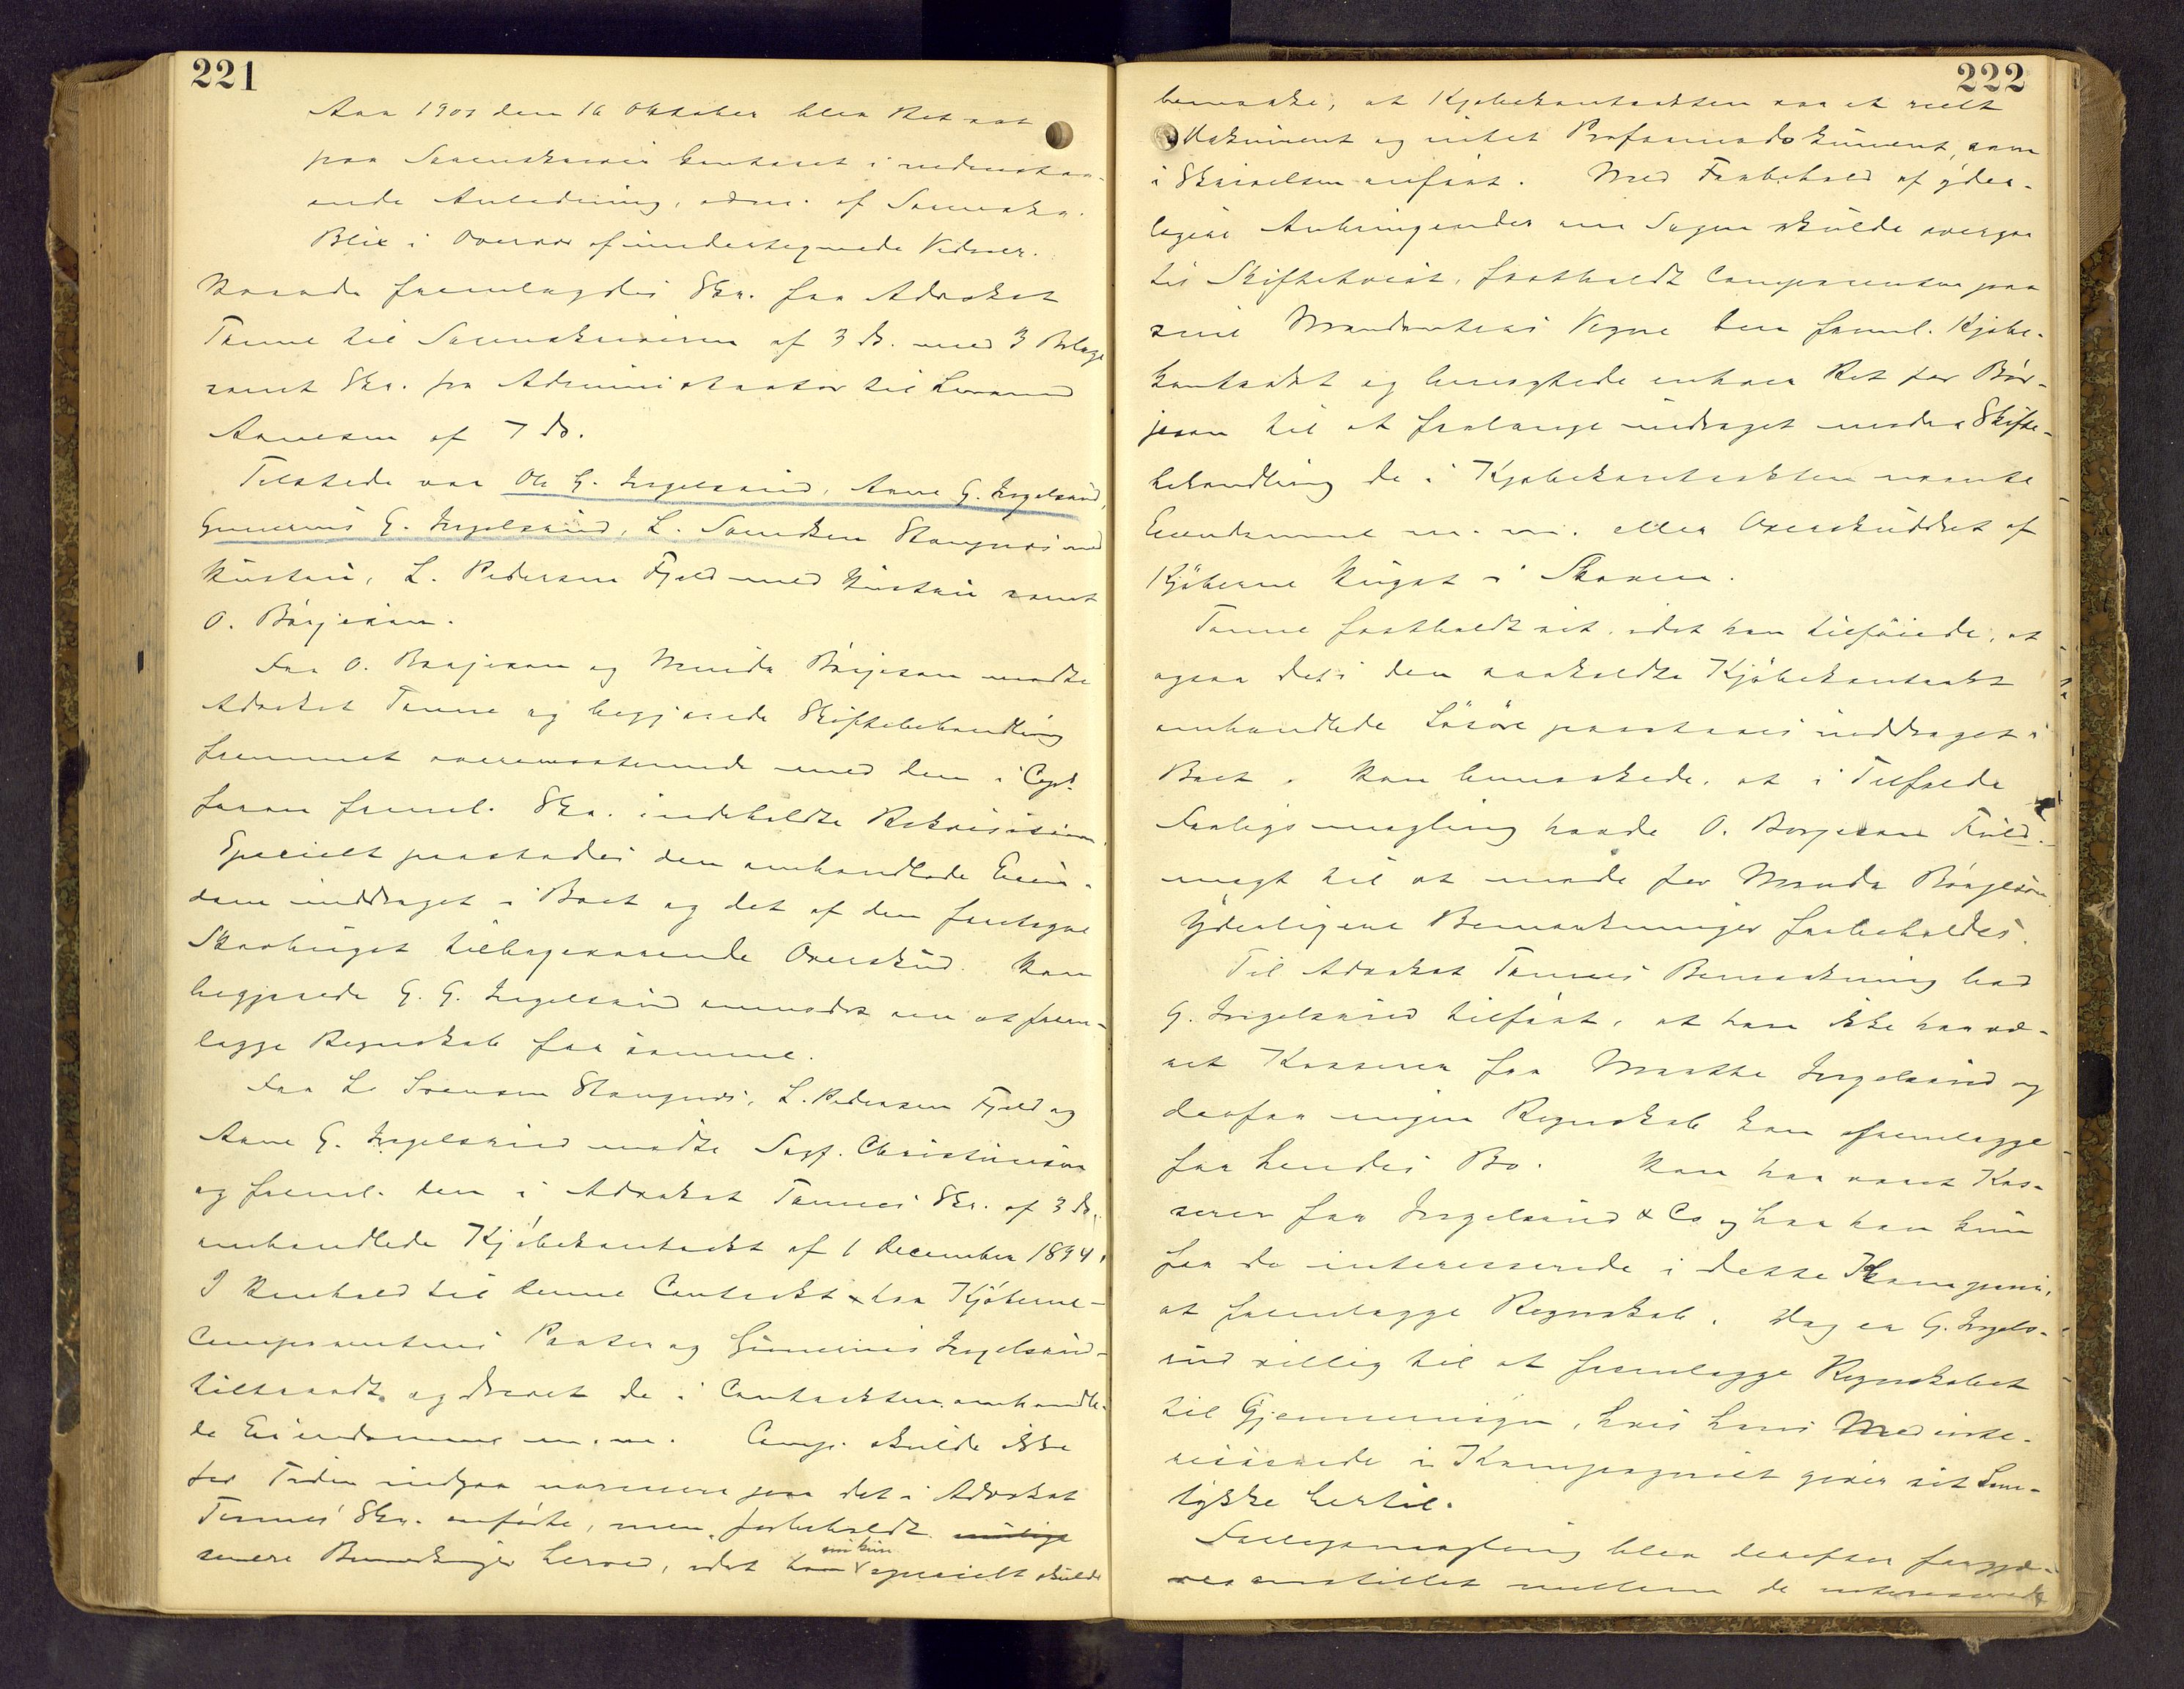 221
Aar 1901 den 16 Oktober blev Ret sat
paa Sorenskriver kontoret i nedenstaa-
ende Anledning, adm. af Sorenskr.
Blix i Overvær af undertegnede Vidner.
Næmnde fremlagdes Skr. fra Advokat
Tanne til Sorenskriveren af 3 ds. med 3 Bilage
samt Skr. fra Administrator til
Arnesen af 7 ds.
Tilstede var Ole G. Ingelsrud, Anne G. Ingelsrud,
Gunerius G. Ingelsrud, L. Svendsen Stangnes med
Hustru, L. Pedersen Fjeld med Hustru samt
O. Börjeson.
For O. Börjeson og Minda Börjeson mødte
Advokat Tanne og begjærede Skiftebehandling
fremmet overensstemmende med den i
foran freml. Skr. indeholdte Rekvisition.
Specielt paastodes den omhandlede Eien-
dom inddraget i Boet og det af den foretagne
Skovhugst tilbageværende Overskud. Han
begjærede G. G. Ingelsrud anmodet om at frem-
lægge Regnskab for samme.
For L. Svensen Stangnes, L. Pedersen Fjeld og
Anne G. Ingelsrud mødte Sagf. Christensen
og freml. den i Advokat Tannes Skr. af 3 ds.
omhandlede Kjöbekontrakt af 1 December 1894.
I Henhold til denne Contrakt har Kjöberne -
Comparentens Parter og Gunerius Ingelsrud -
tiltraadt og drevet de i Contrakten omhandle-
de Eiendomme m. m. Comp. skulde ikke
for Tiden indgaa nærmere paa det i Advokat
Tannes Skr. anførte, men forbeholdt mulige
senere Bemerkninger herved, idet han nu kun specielt skulde
222
bemærke, at Kjøbekontrakten var et reelt
Dokument og intet Proformadokument, som
i Skrivelsen anført. Med Forbehold af yder-
ligere Anbringender om Sagen skulde overgaa
til Skiftetvist, fastholdt Comparenten paa
sine Mandanters Vegne den freml. Kjøbe-
kontrakt og benegtede enhver Ret for Bör-
jeson til at forlange inddraget under Skifte-
behandling de i Kjøbekontrakten nævnte
Eiendomme m. m. eller Overskuddet af
Kjöberne Hugst i Skoven.
Tanne fastholdt sit, idet han tilföiede, at
ogsaa det i den saakaldte Kjöbekontrakt
omhandlede Lösöre paastaaes inddraget i
Boet. Han bemærkede, at i Tilfælde
Forligsmægling havde O. Borjeson Fuld-
magt til at møde for Minda Börjeson.
Yderligere Bemærkninger forbeholdes.
Til Advokat Tannes Bemærkning bad
G. Ingelsrud tilført, at han ikke har væ-
ret Kasserer for Marthe Ingelsrud og
derfor ingen Regnskab kan fremlægge
for hendes Bo. Han har været Kas-
serer for Ingelsrud & Co og har han kun
for de interesserede i dette Kompani,
at fremlægge Regnskab. Dog er G. Ingels-
rud villig til at fremlægge Regnskabet
til Gjennemsyn, hvis hans Medinte-
resserede i Kompagniet giver sit Sam-
tykke hertil.
Forligsmægling blev derefter forgjæ-
ves anstillet mellem de interesserede